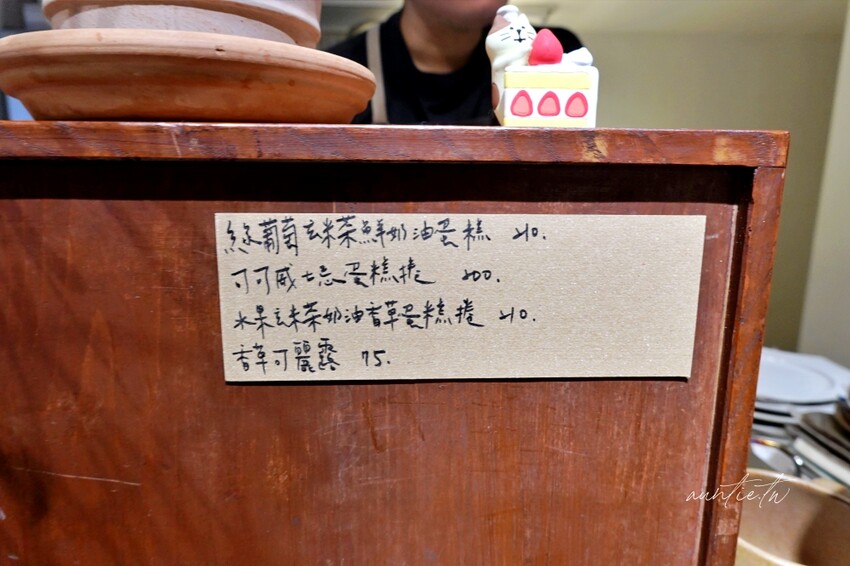 綠葡萄玄米茶鮮奶油蛋糕 210.
可可威士忌蛋糕捲 200.
水果玄米茶奶油香草蛋糕捲 210.
香草可麗露 75.
auntie.tw